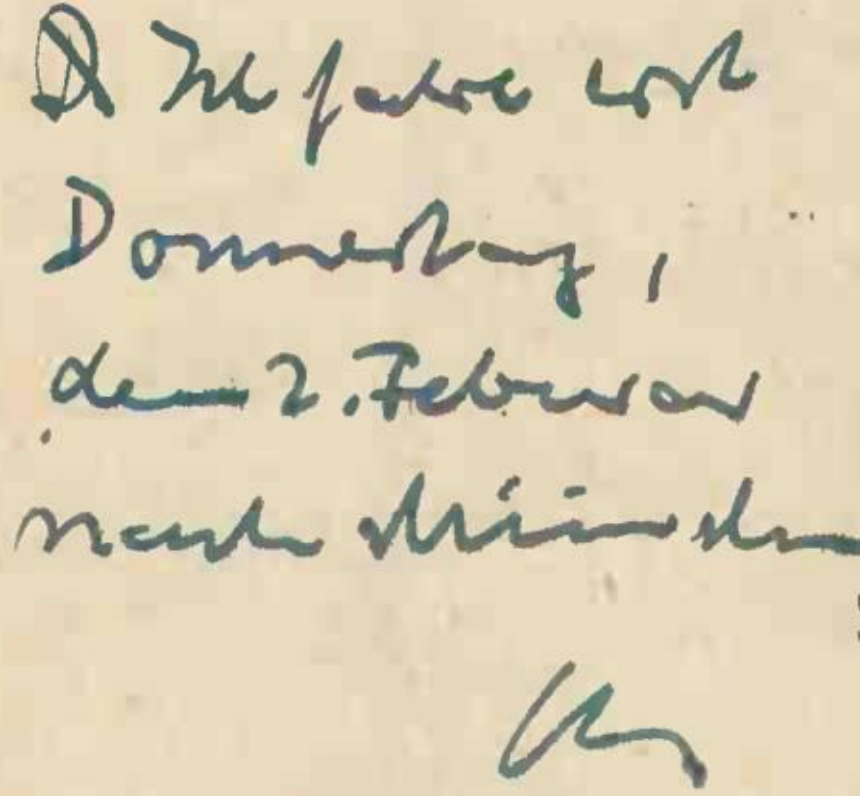 Ich fahre erst
Donnerstag,
den 2. Februar
nach München